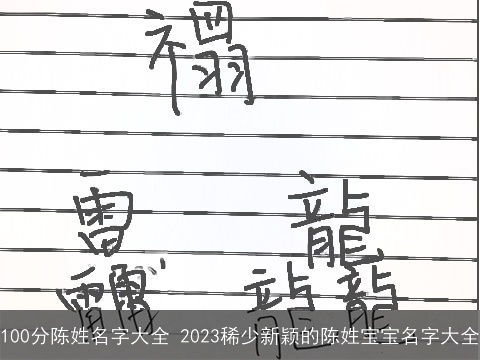 靐 龘
100分陈姓名字大全 2023稀少新颖的陈姓宝宝名字大全